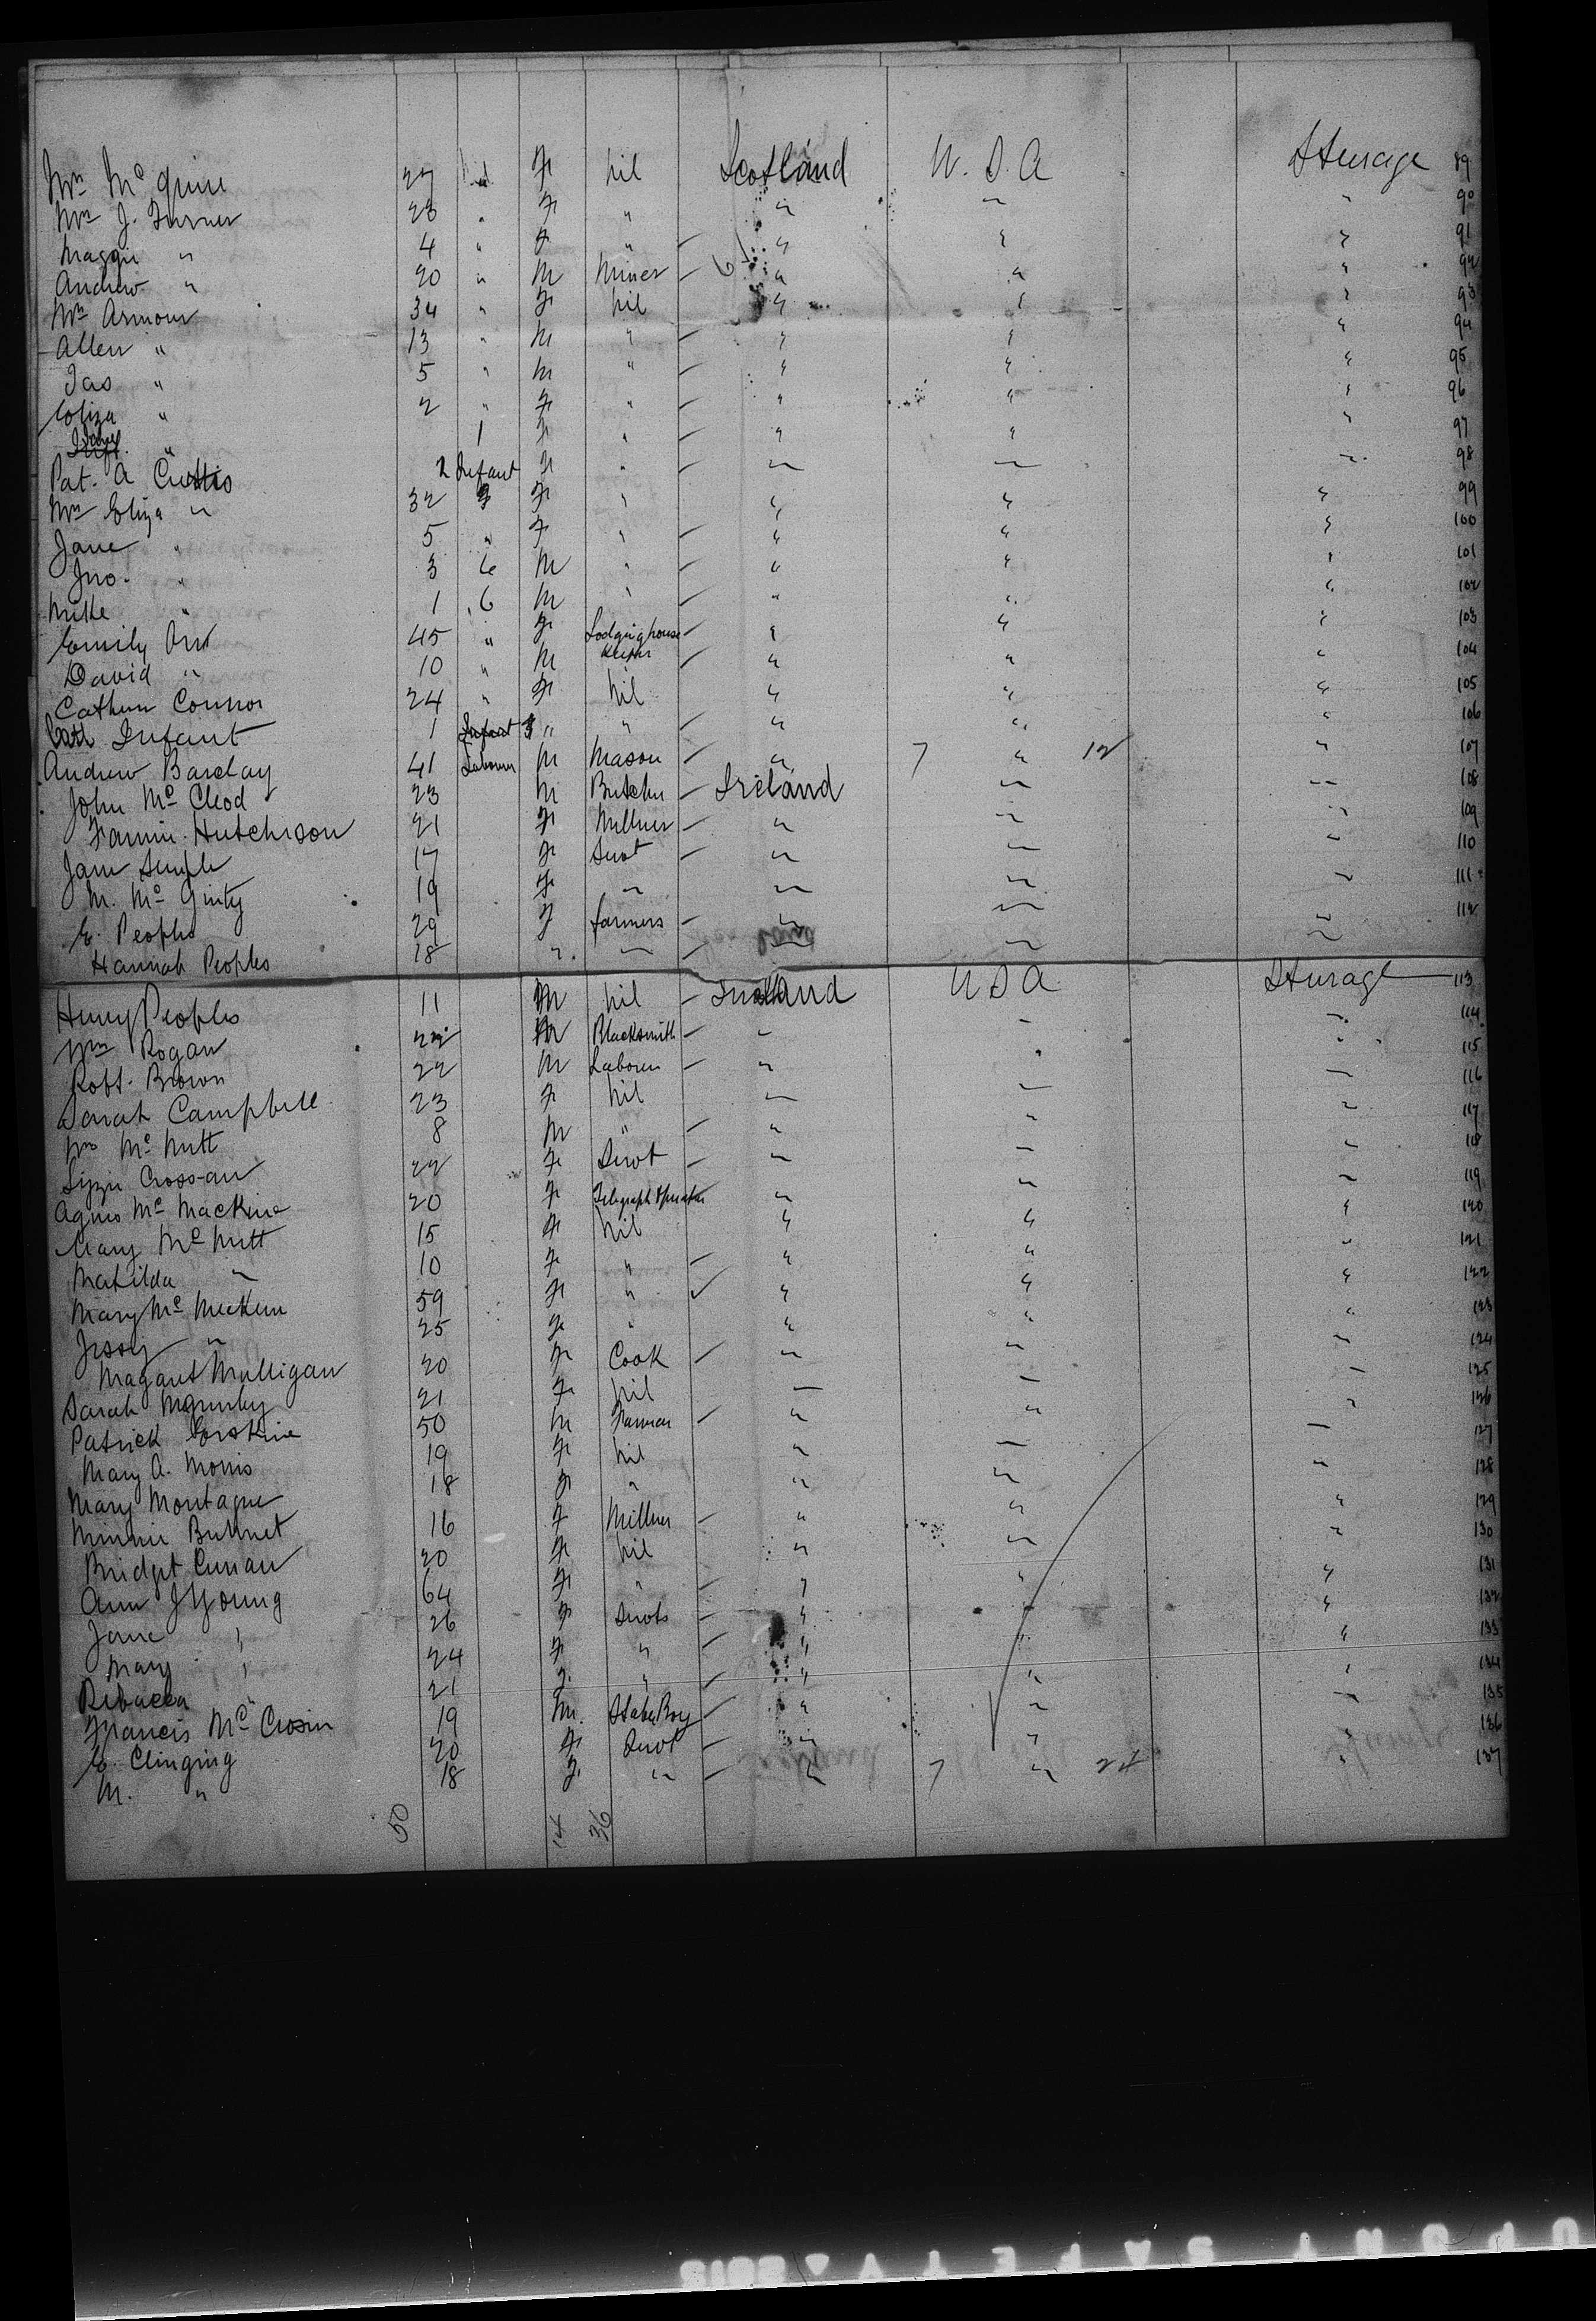 Mrs McGuire 27 nil F nil Scotland U.S.A Steerage 89
Mrs J. Turner 23 " F " " " " 90
Maggie " 4 " F " " " " 91
Andrew " 20 " M Miner " " " 92
Mrs Armour 34 " F nil " " " 93
Allen " 13 " M " " " " 94
Jas " 5 " M " " " " 95
Eliza " 2 " F " " " " 96
" 1 F " " " " 97
Pat. A Curtis 2 Infant F " " " " 98
Mrs Eliza " 32 F " " " " 99
Jane " 5 " F " " " " 100
Jno. " 3 6 M " " " " 101
Mike " 1 6 M " " " " 102
Emily Orr 45 " F Lodginghouse Keeper " " " 103
David " 10 " M " " " 104
Cathern Connor 24 " F nil " " " 105
Infant 1 Infant " " " " " 106
Andrew Barclay 41 Labourer M Mason " 7 " 12 " 107
John McCleod 23 M Butcher Ireland " " 108
Fannie Hutchison 21 F Milliner " " " 109
Jane Semple 17 F Servt " " " 110
M. McGinty 19 F " " " " 111
E. Peoples 29 F farmers " " " 112
Hannah Peoples 18 " " " " "
Henry Peoples 11 M nil U S A Steerage 113
Wm Rogan 22 M Blacksmith " " " 114
Robt. Brown 22 M Laborer " " " 115
Sarah Campbell 23 F nil " " " 116
Wm McNutt 8 M " " " " 117
Lizzie Crossan 22 F Servt " " " 118
Agnes McMackine 20 F Telegraph Operator " " " 119
Mary McNutt 15 F nil " " " 120
Matilda " 10 F " " " " 121
Mary McMeckin 59 F " " " " 122
Jessy " 25 F " " " " 123
Magaret Mulligan 20 F Cook " " " 124
Sarah 21 F nil " " " 125
Patrick Erskine 50 M Farmer " " " 126
Mary A. Morris 19 F nil " " " 127
Mary Montague 18 F " " " " 128
Minnie 16 F Milliner " " " 129
Bridget Curran 20 F nil " " " 130
Ann J Young 64 F " " " " 131
Jane " 26 F Servts " " " 132
Mary " 24 F " " " " 133
Rebacca " 21 F " " " " 134
Francis McCrosin 19 M. Stable Boy " " " 135
E. Clinging 20 F Servt " " " 136
M. " 18 F " " 7 " 24 " 137
50 14 36